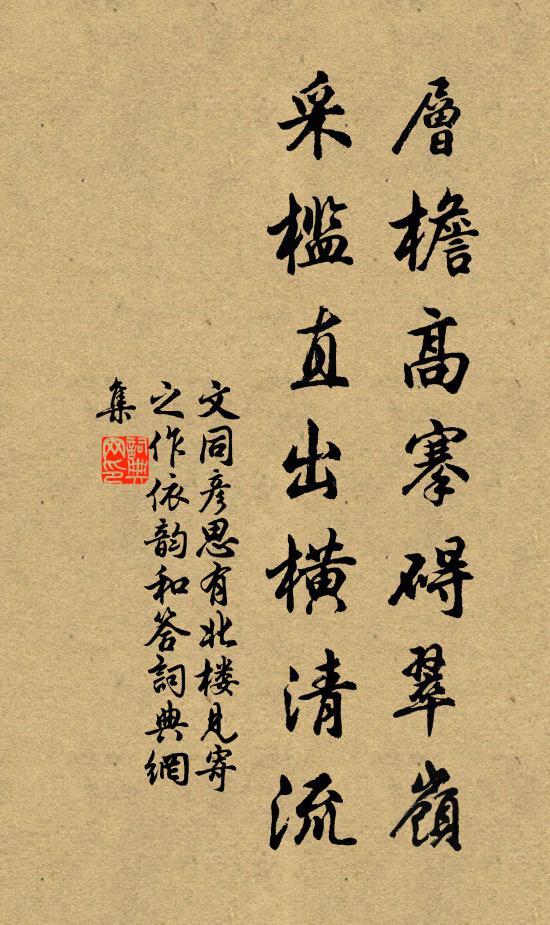 層檐高搴碍翠嶺
采檻直出橫清流
文同彥思有北楼見寄
之作依韵和答詞典網
集
詞典網印